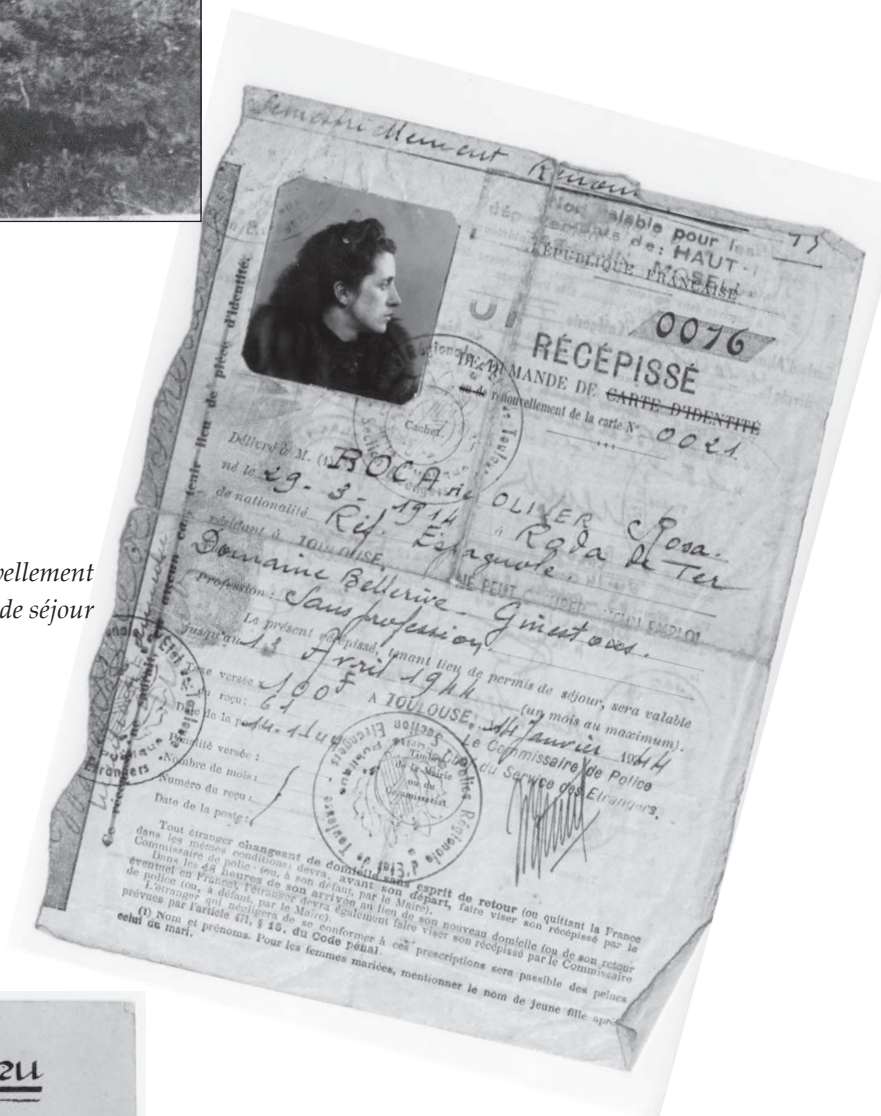 Renouv
75
Non valable pour les
départements de: HAUT-
MOSEL
RÉPUBLIQUE FRANÇAISE
0076
RÉCÉPISSÉ
DE DEMANDE DE CARTE D'IDENTITÉ
ou de renouvellement de la carte N° 0021
Cachet
Délivré à M. (1) ROCA née OLIVER Rosa.
né le 29.3.1914 à Roda de Ter
de nationalité Réf. Espagnole.
résidant à TOULOUSE.
Domaine Bellerive - Ginestous.
Profession: Sans profession.
Le présent récépissé, tenant lieu de permis de séjour, sera valable
jusqu'au 13 Avril 1944 (un mois au maximum).
Taxe versée: 100F A TOULOUSE, 14 Janvier 1944
N° du reçu: 61
Le Commissaire de Police
Date de la p 14.1.44
du Service des Etrangers.
Pénalité versée:
Nombre de mois:
Numéro du reçu:
Date de la poste:
Timbre
de la Mairie
ou du
Commissariat
Tout étranger changeant de domicile sans esprit de retour (ou quittant la France
dans les mêmes conditions) devra, avant son départ, faire viser son récépissé par le
Commissaire de police (ou, à son défaut, par le Maire).
Dans les 48 heures de son arrivée au lieu de son nouveau domicile (ou de son retour
éventuel en France), l'étranger devra également faire viser son récépissé par le Commissaire
de police (ou, à défaut, par le Maire).
L'étranger qui négligera de se conformer à ces prescriptions sera passible des peines
prévues par l'article 471, § 15, du Code pénal.
(1) Nom et prénoms. Pour les femmes mariées, mentionner le nom de jeune fille après
celui du mari.
pièce d'identité.
ellement
de séjour
eu